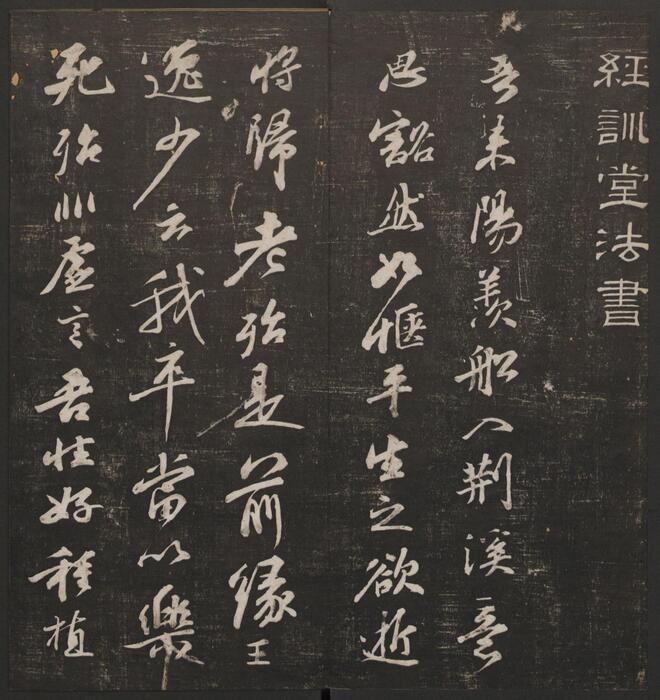 經訓堂法書
吾来陽羨船入荆溪意
思豁然如愜平生之欲逝
将歸老殆是前緣王
逸少云我卒當以樂
死殆非虛言吾性好種植